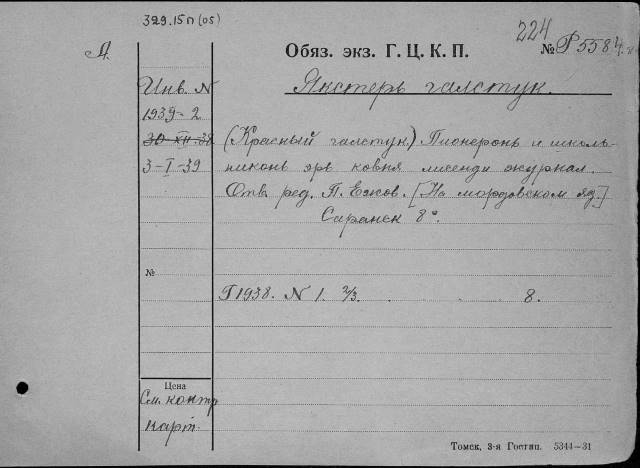 329.15п(05)
224
Обяз. экз. Г. Ц. К. П.
№ Р5584
Д.
Якстерь галстук.
Инв. N
1939-2
30-XII-38
3-I-39
(Красный галстук.) Пионеронь и школь-
никонь эрь ковня лисенди журнал.
Отв. ред. П. Ежов. [На мордовском яз.]
Саранск 8°.
№
Г1938. N 1. 2/3. 8.
Цена
См. контр
карт.
Томск, 3-я Гостип. 5344—31